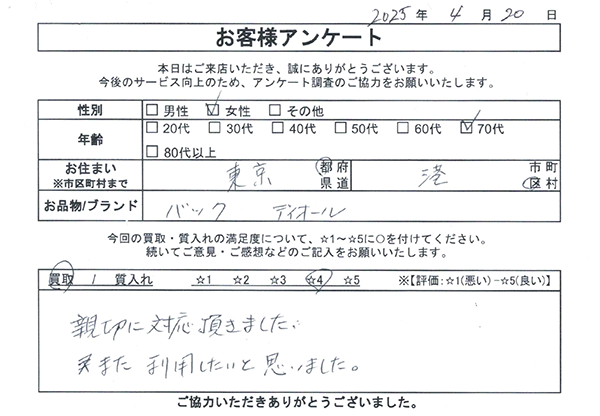 2025年 4月 20日
お客様アンケート
本日はご来店いただき、誠にありがとうございます。
今後のサービス向上のため、アンケート調査のご協力をお願いいたします。
性別 □男性 ☑女性 □その他
年齢 □20代 □30代 □40代 □50代 □60代 ☑70代
□80代以上
お住まい ※市区町村まで 東京 都府県道 港 市町区村
お品物/ブランド バック ディオール
今回の買取・質入れの満足度について、☆1～☆5に○を付けてください。
続いてご意見・ご感想などのご記入をお願いいたします。
買取 / 質入れ ☆1 ☆2 ☆3 ☆4 ☆5 ※【評価:☆1(悪い)−☆5(良い)】
親切に対応頂きました、
また 利用したいと思いました。
ご協力いただきありがとうございました。